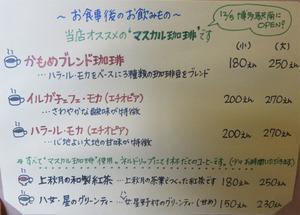 ～お食事後のお飲みもの～
当店オススメの"マスカル珈琲"です
12/6 博多駅前にOPEN!
(小) (大)
かもめブレンド珈琲 180えん 250えん
…ハラール・モカをベースに3種類の珈琲豆をブレンド
イルガチェフェ・モカ(エチオピア) 200えん 270えん
…さわやかな酸味が特徴
ハラール・モカ(エチオピア) 200えん 270えん
…心地よい大地の甘味が特徴
すべて"マスカル珈琲"使用。ネルドリップにて1杯だてのコーヒーです。(少々お時間いただきます)
上秋月の和製紅茶 …上秋月の茶葉でつくった紅茶です 180えん 250えん
八女・星のグリーンティ …八女星野村のグリーンティ(甘め) 150えん 230えん